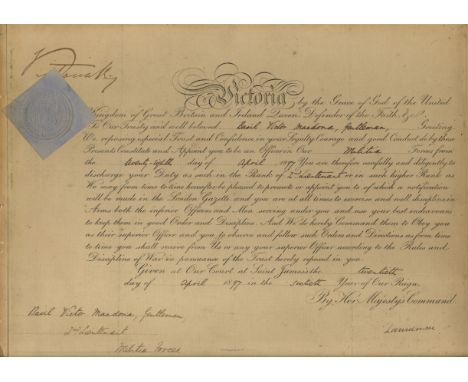 Victoria
Victoria, by the Grace of God of the United
Kingdom of Great Britain and Ireland Queen Defender of the Faith, &c.
To Our Trusty and well beloved Basil Victor Gentleman, Greeting
We, reposing especial Trust and Confidence in your Loyalty Courage and good Conduct do by these
Presents Constitute and Appoint you to be an Officer in Our Militia Forces from
the day of April 1897 You are therefore carefully and diligently to
discharge your Duty as such in the Rank of 2d Lieutenant or in such higher Rank as
We may from time to time hereafter be pleased to promote or appoint you to of which a notification
will be made in the London Gazette and you are at all times to exercise and well discipline in
Arms both the inferior Officers and Men serving under you and use your best endeavours
to keep them in good Order and Discipline. And We do hereby Command them to Obey you
as their superior Officer and you to observe and follow such Orders and Directions as from time
to time you shall receive from Us or any your superior Officer according to the Rules and
Discipline of War in pursuance of the Trust hereby reposed in you.
Given at Our Court at Saint James's the twentieth
day of April 1897 in the sixtieth Year of Our Reign.
By Her Majesty's Command.
Basil Victor Gentleman,
2d Lieutenant
Militia Forces